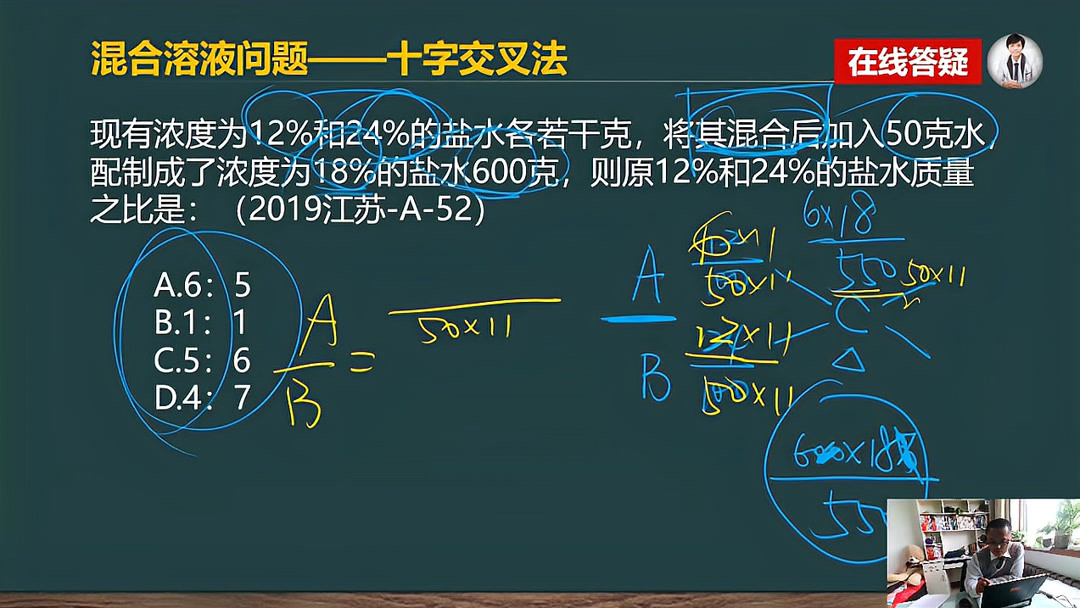 混合溶液问题——十字交叉法
在线答疑
现有浓度为12%和24%的盐水各若干克，将其混合后加入50克水，
配制成了浓度为18%的盐水600克，则原12%和24%的盐水质量
之比是：（2019江苏-A-52）
A.6：5
B.1：1
C.5：6
D.4：7
A
B
=
50×11
A
B
50×11
12×11
50×11
6×18
550
50×11
C
△
550